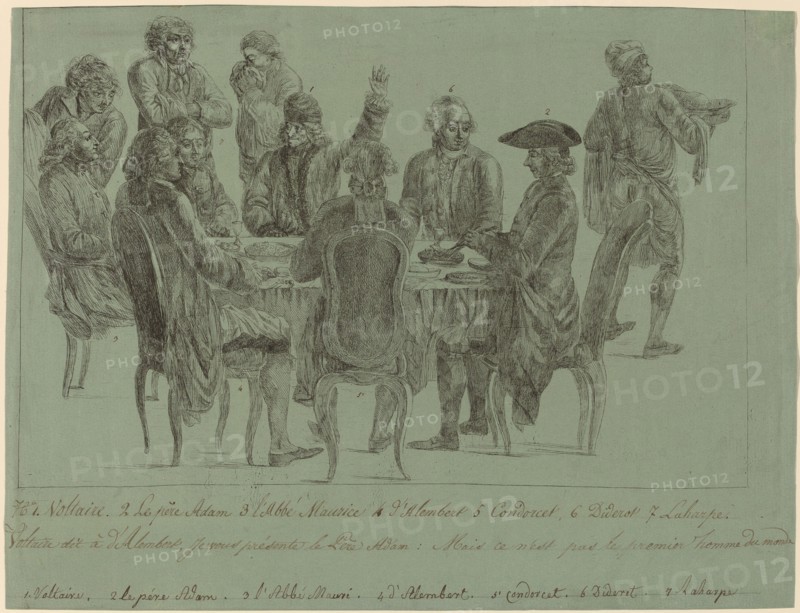 No 1. Voltaire. 2 Le père Adam 3 l'Abbé Maurice 4 d'Alembert 5 Condorcet, 6 Diderot 7 Laharpe.
Voltaire dit à d'Alembert, Je vous présente le Père Adam : Mais ce n'est pas le premier homme du monde
1. Voltaire. 2 le père Adam. 3 l'Abbé Mauri. 4 d'Alembert. 5 Condorcet. 6 Diderit. 7 Laharpe
PHOTO12